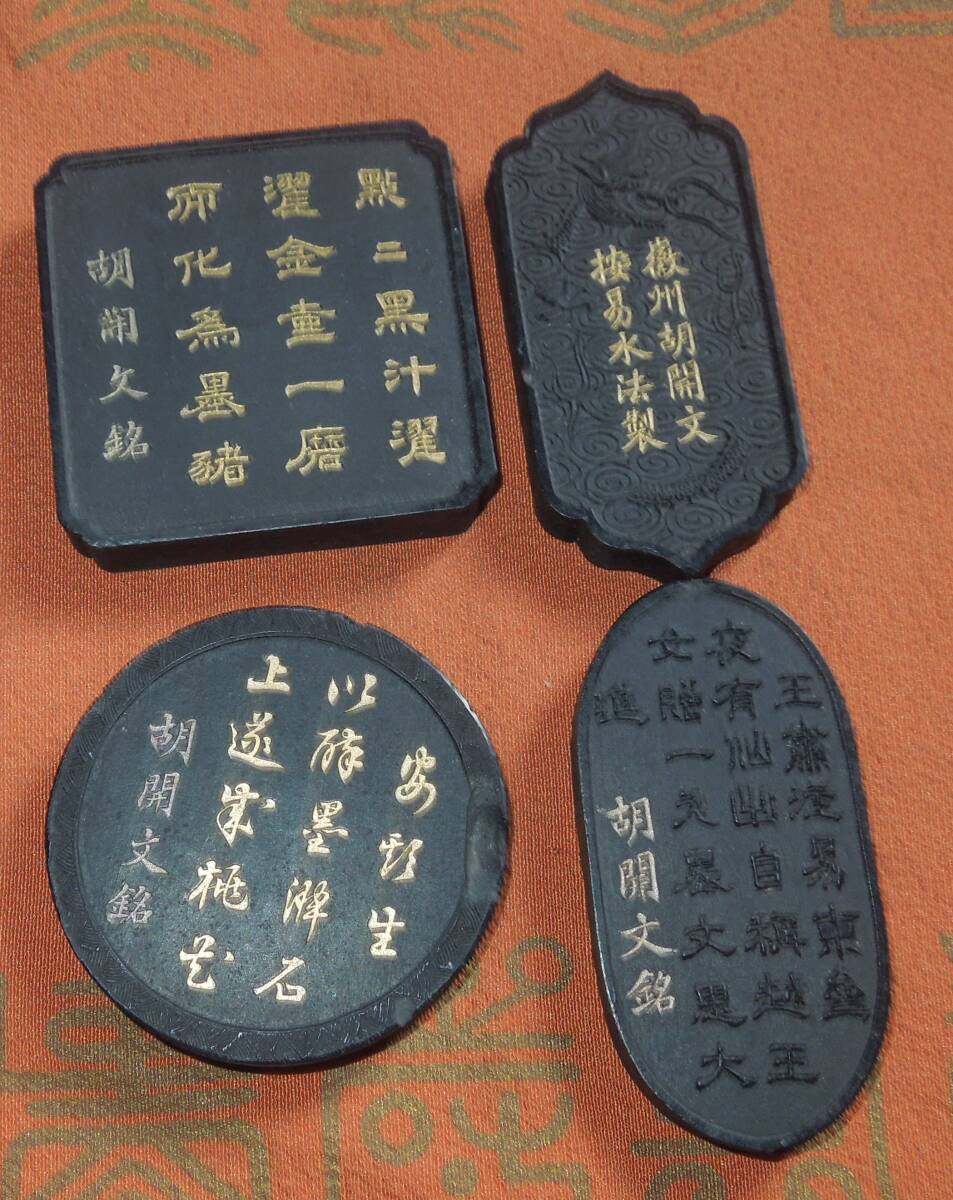 點二黑汁濯
濯金壺一磨
化為墨豬
胡開文銘
徽州胡開文
按易水法製
安期生
以醉墨灑石
上遂成桃花
胡開文銘
王肅注易東
夜有仙出自稱越王
女贈一丸墨文思大
進
胡開文銘